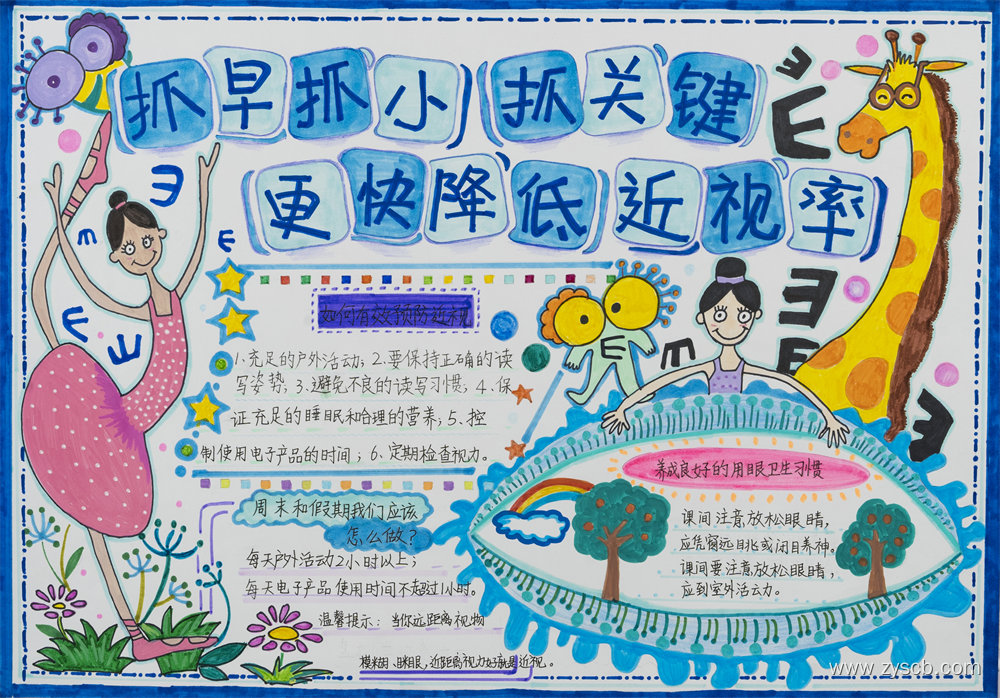 抓早抓小抓关键
更快降低近视率
如何有效预防近视
1.充足的户外活动；2.要保持正确的读
写姿势；3.避免不良的读写习惯；4.保
证充足的睡眠和合理的营养；5、控
制使用电子产品的时间；6、定期检查视力。
周末和假期我们应该
怎么做？
每天户外活动2小时以上；
每天电子产品使用时间不超过1小时。
温馨提示：当你远距离视物
模糊、眯眼，近距离视力好就是近视。
养成良好的用眼卫生习惯
课间注意放松眼睛，
应凭窗远目兆或闭目养神。
课间要注意放松眼睛，
应到室外活动。
www.zyscb.com